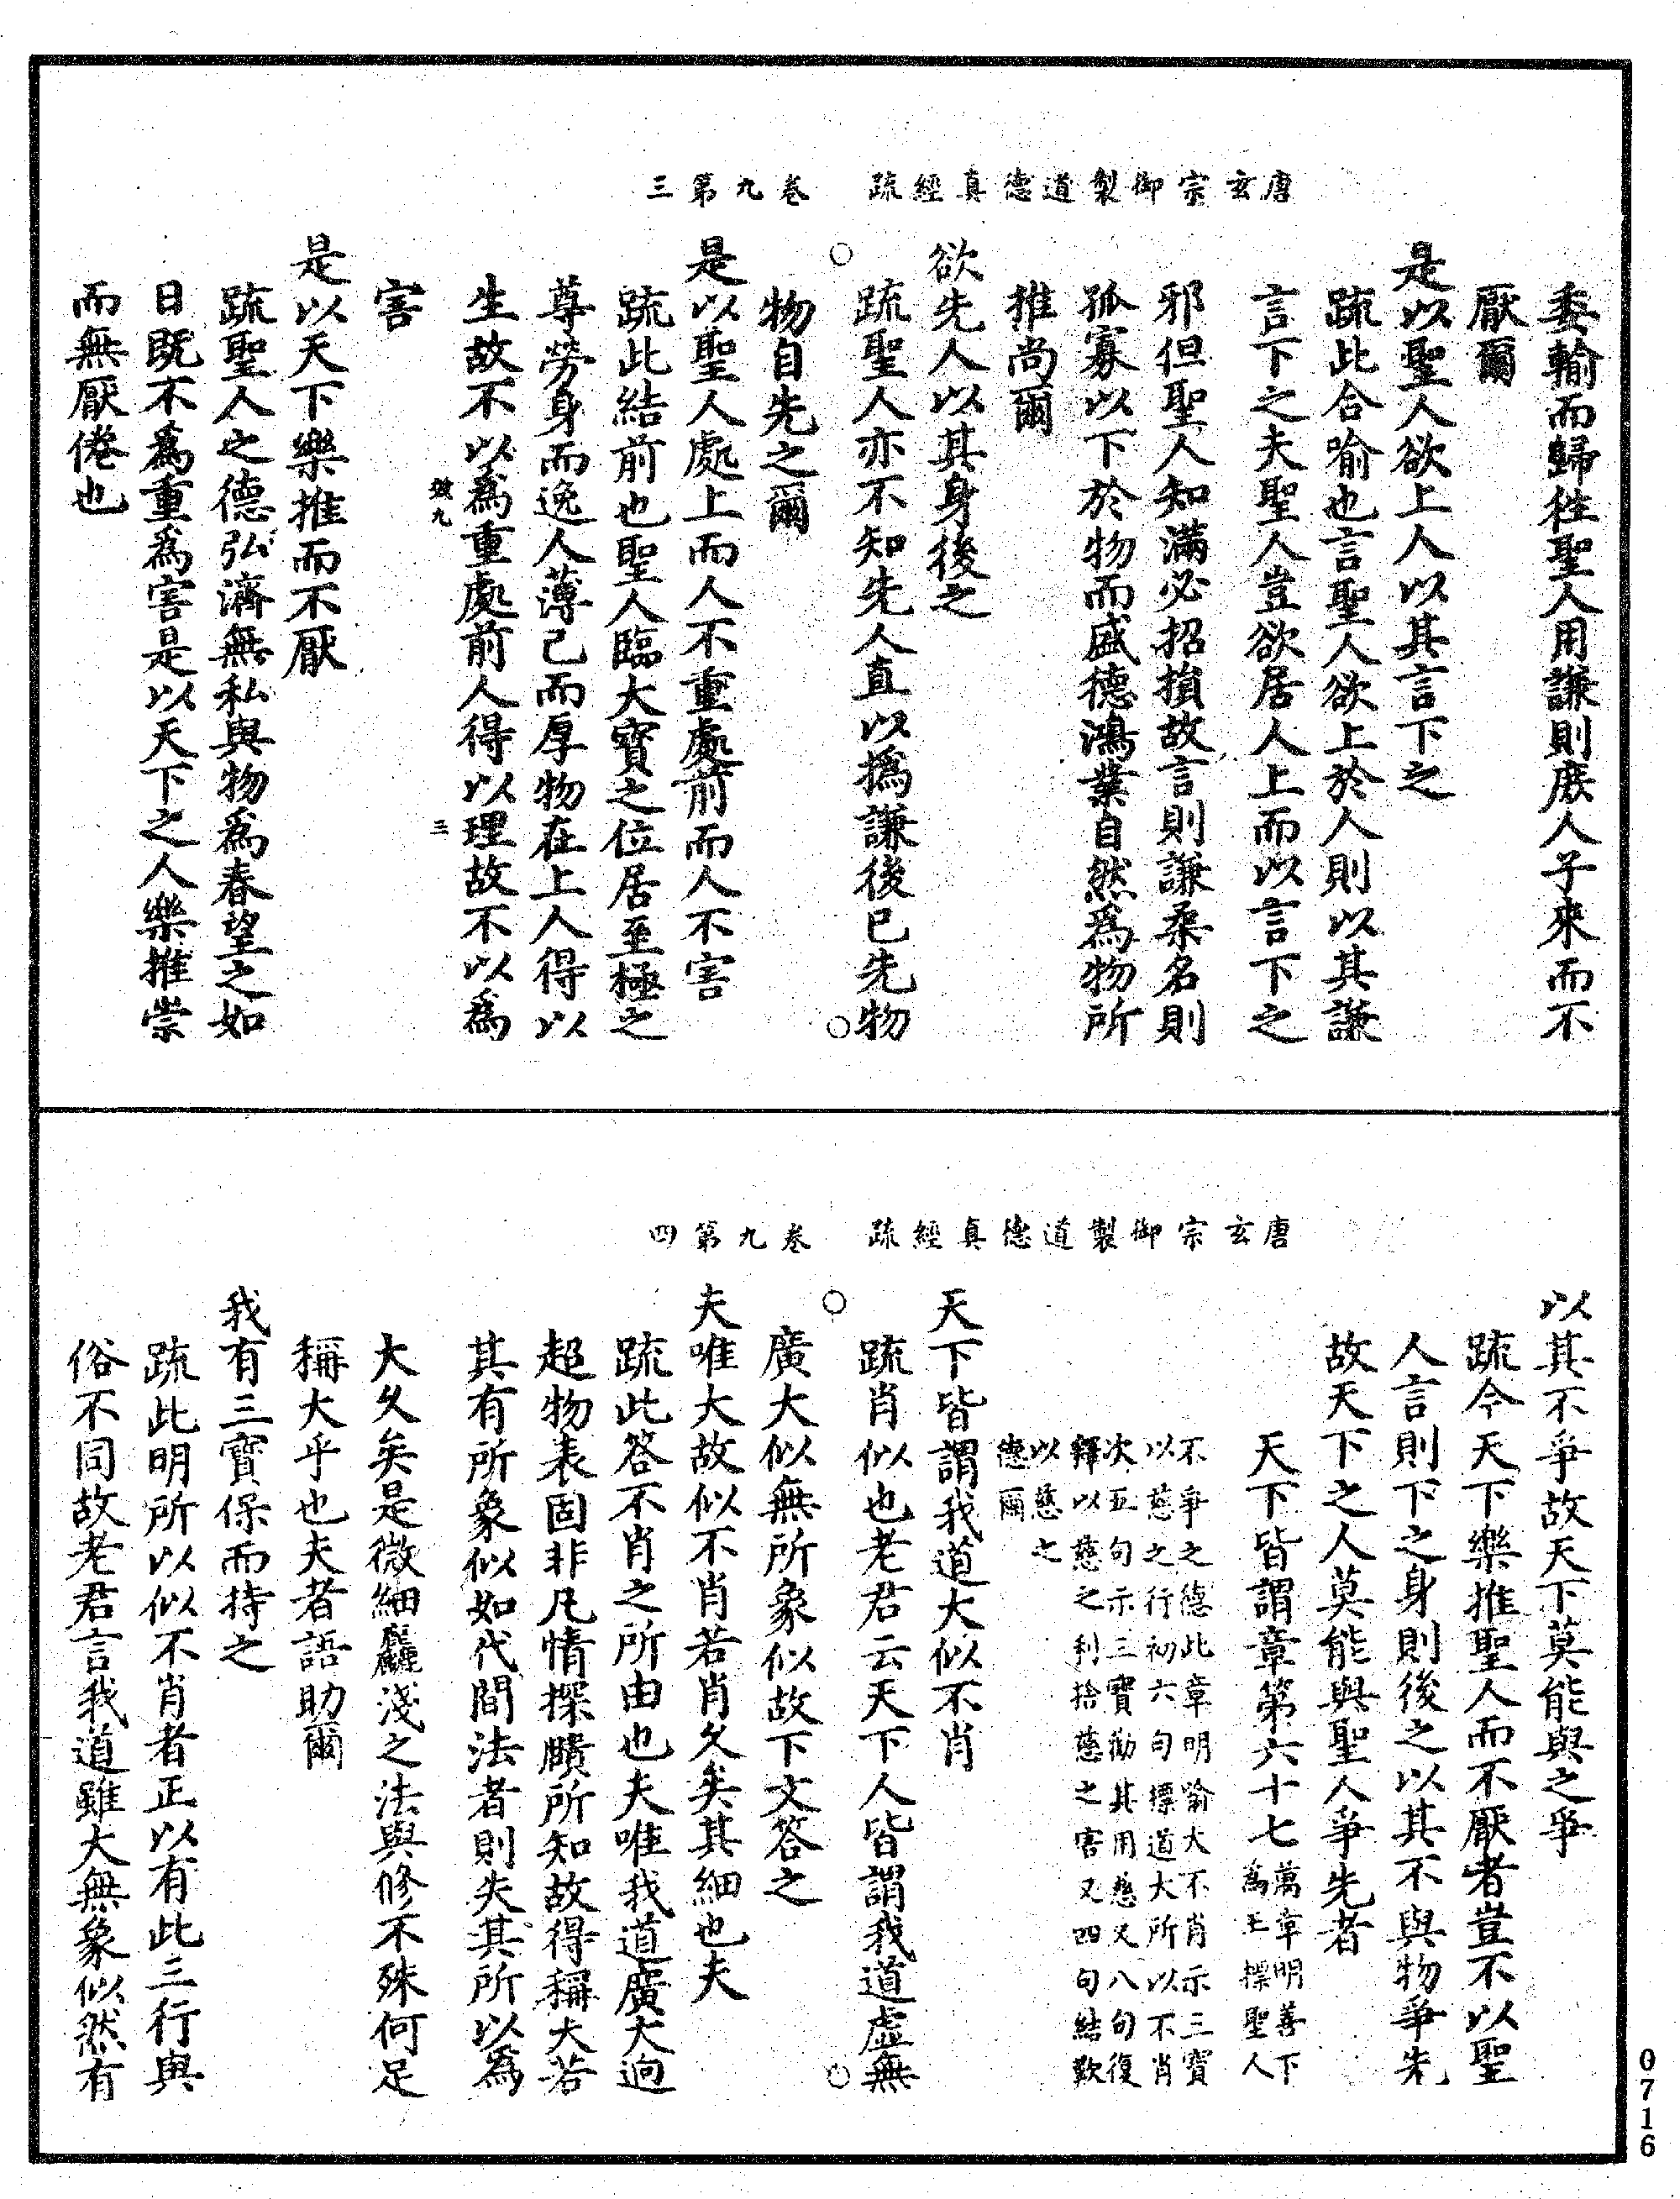 唐玄宗御製道德真經疏　卷九第三
委輸而歸往聖人用謙則庶人子來而不
厭爾
是以聖人欲上人以其言下之
疏此合喻也言聖人欲上於人則以其謙
言下之夫聖人豈欲居人上而以言下之
邪但聖人知滿必招損故言則謙柔名則
孤寡以下於物而盛德鴻業自然爲物所
推尚爾
欲先人以其身後之
疏聖人亦不知先人直以撝謙後已先物
物自先之爾
是以聖人處上而人不重處前而人不害
疏此結前也聖人臨大寶之位居至極之
尊勞身而逸人薄己而厚物在上人得以
生故不以爲重處前人得以理故不以爲
效九　三
害
是以天下樂推而不厭
疏聖人之德弘濟無私與物爲春望之如
日既不爲重爲害是以天下之人樂推崇
而無厭倦也
唐玄宗御製道德真經疏　卷九第四
以其不爭故天下莫能與之爭
疏今天下樂推聖人而不厭者豈不以聖
人言則下之身則後之以其不與物爭先
故天下之人莫能與聖人爭先者
天下皆謂章第六十七
萬章明善下
爲王標聖人
不爭之德此章明喻大不肖示三寶
以慈之行初六句標道大所以不肖
次五句示三寶勸其用慈又八句復
釋以慈之利捨慈之害又四句結歎
以慈之
德爾
天下皆謂我道大似不肖
疏肖似也老君云天下人皆謂我道虛無
廣大似無所象似故下文答之
夫唯大故似不肖若肖久矣其細也夫
疏此答不肖之所由也夫唯我道廣大迥
超物表固非凡情探賾所知故得稱大若
其有所象似如代間法者則失其所以爲
大久矣是微細麤淺之法與修不殊何足
稱大乎也夫者語助爾
我有三寶保而持之
疏此明所以似不肖者正以有此三行與
俗不同故老君言我道雖大無象似然有
0716